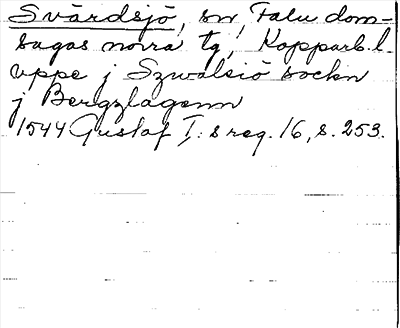 Svärdsjö, sn Falu dom-
sagas norra tg, Kopparb. l.
vppe j Szwalsiö sockn
j Bergzlagenn
1544 Gustaf I:s reg. 16, s. 253.